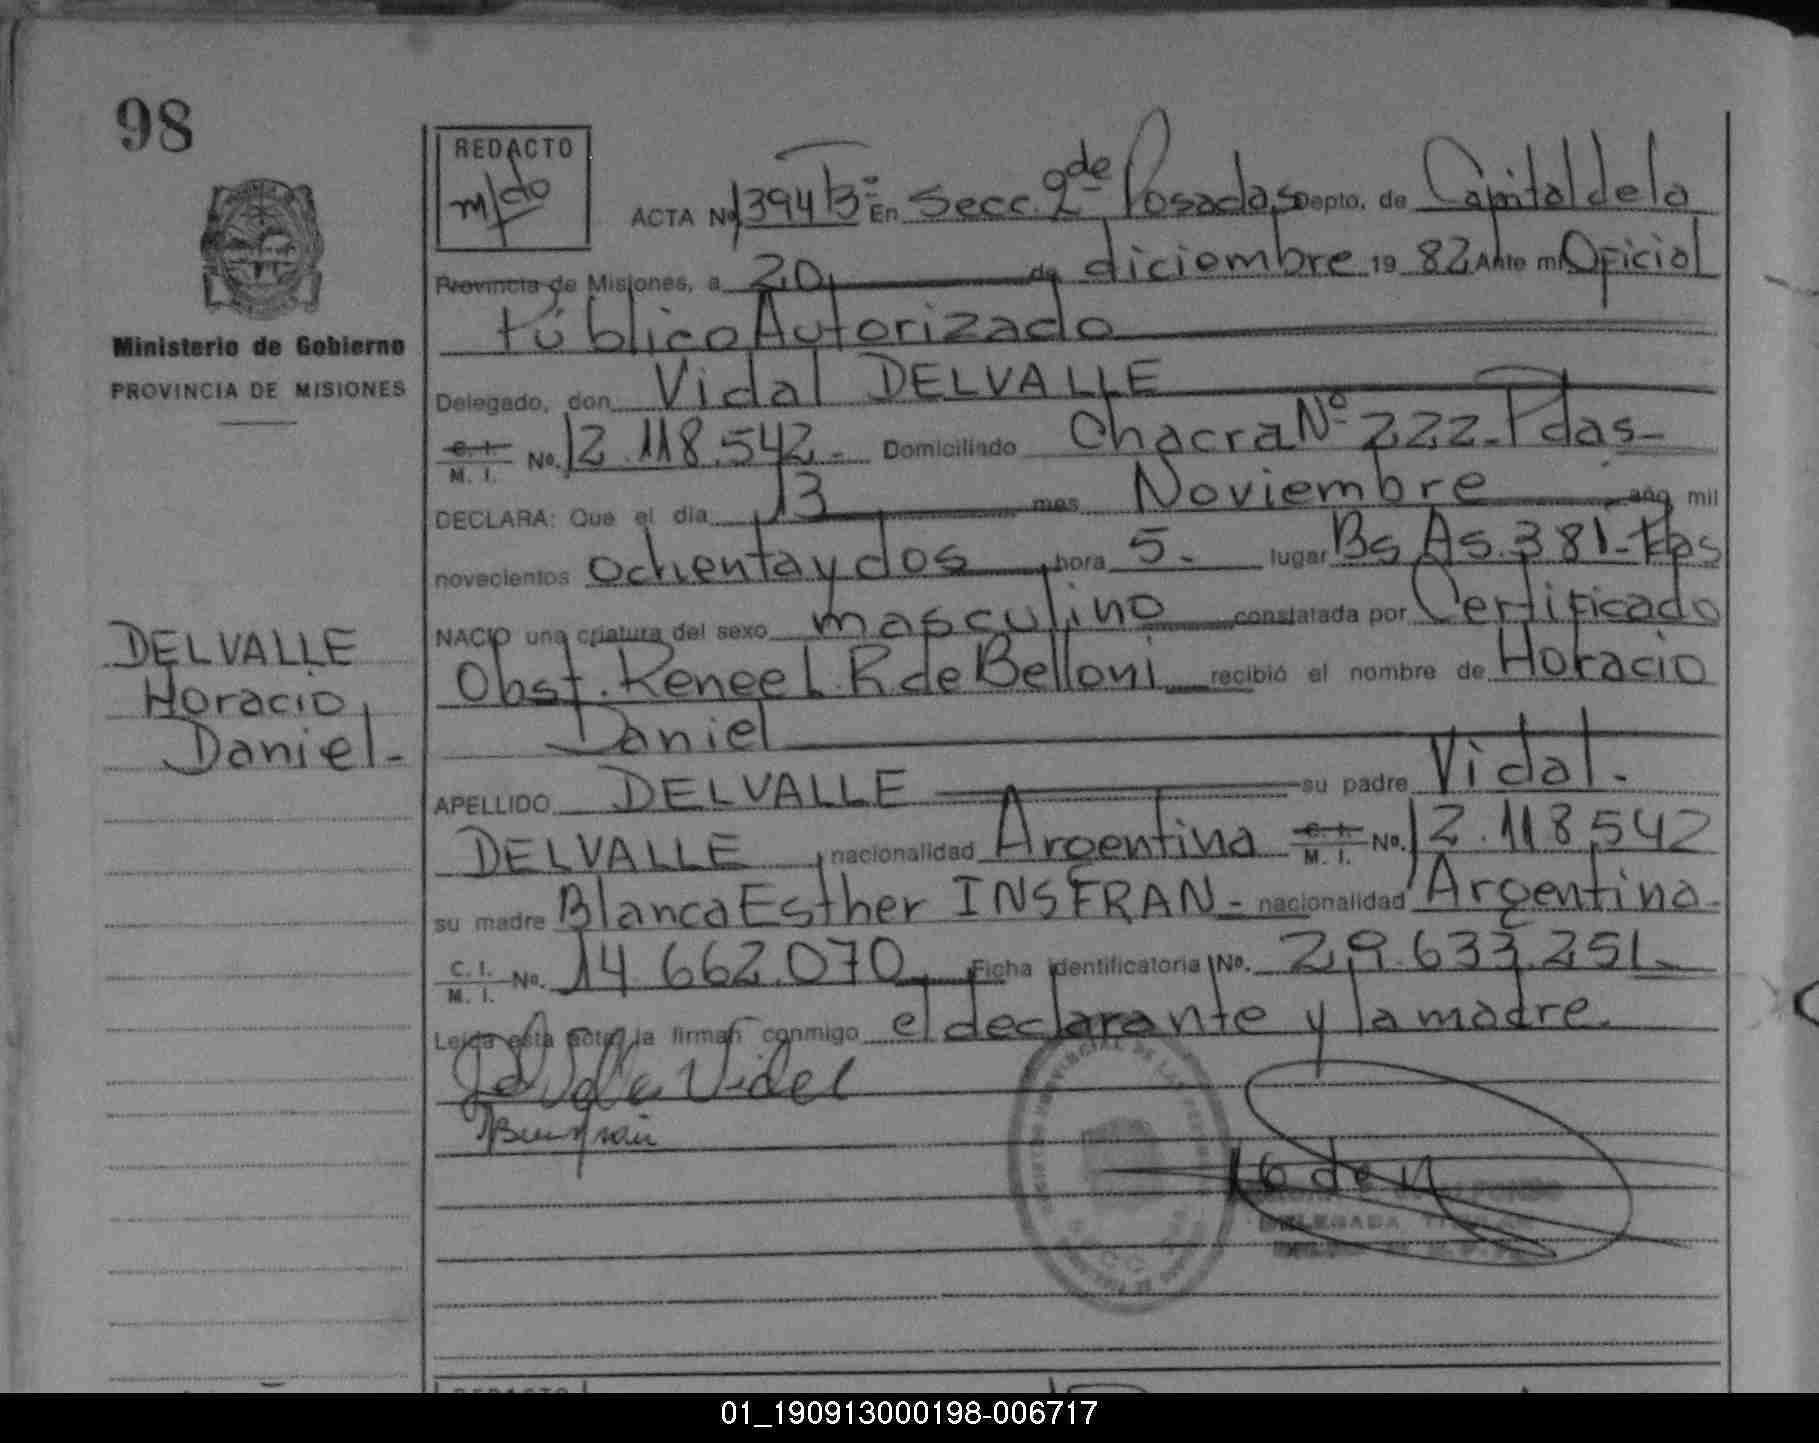 98
REDACTO
ACTA Nº 1394 Bº En Secc. 2de Posadas Depto. de Capital de la
Provincia de Misiones, a 20 de diciembre 19 82 Ante mi Oficial
Público Autorizado
Ministerio de Gobierno
PROVINCIA DE MISIONES
Delegado, don Vidal DELVALLE
C. I. M. I. No. 12.118.542- Domiciliado Chacra Nº 222- Pdas-
DECLARA: Que el día 13 mes Noviembre año mil
novecientos ochenta y dos hora 5.- lugar Bs As. 381- Pdas
NACIO una criatura del sexo masculino constatada por Certificado
Obst. Renee L. R de Belloni recibió el nombre de Horacio
Daniel
DELVALLE
Horacio
Daniel-
APELLIDO DELVALLE su padre Vidal-
DELVALLE, nacionalidad Argentina C. I. M. I. No. 12.118.542
su madre Blanca Esther INSFRAN- nacionalidad Argentina-
C. I. M. I. No. 14.662.070, Ficha identificatoria No. 29.633.251-
Leída esta acta, la firman conmigo el declarante y la madre.
Delvalle Vidal
DELEGADA TITULAR
01_190913000198-006717